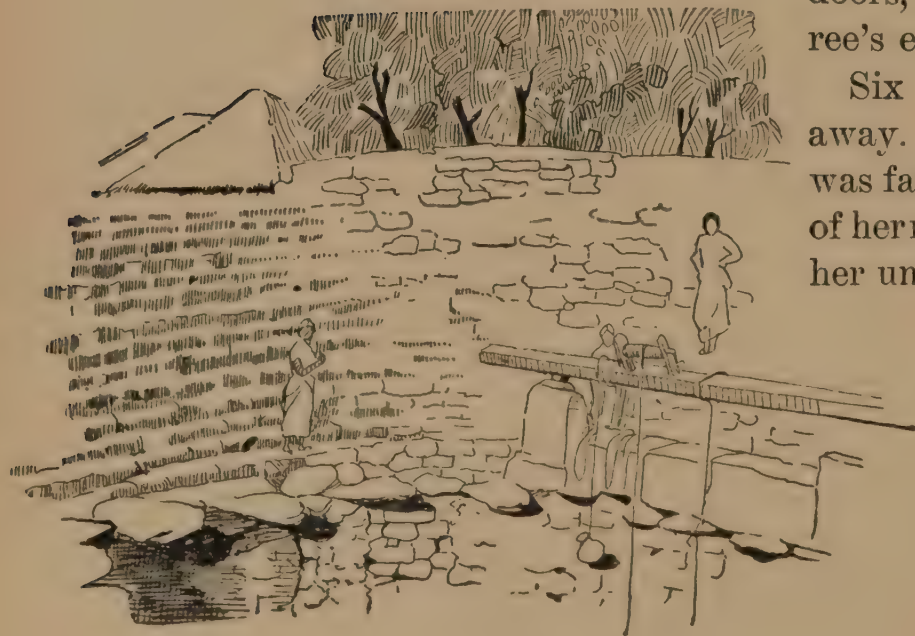 ree's e
Six
away.
was fa
of her
her un